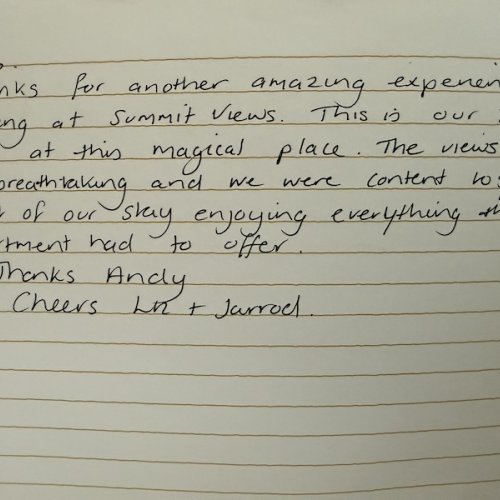 nks for another amazing experien
ng at Summit Views. This is our
at this magical place. The views
breathtaking and we were content to s
t of our stay enjoying everything th
rtment had to offer.
Thanks Andy
Cheers + Jarrod.